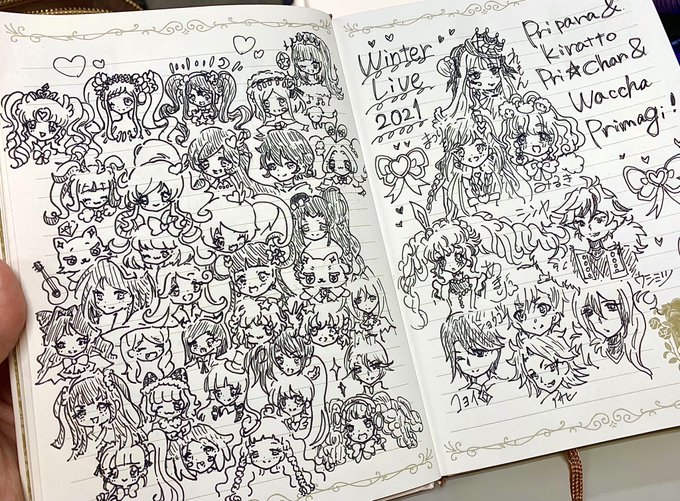 Winter
Live
2021
Pripara &
Kiratto
Pri☆Chan &
Waccha
Primagi!
みるき